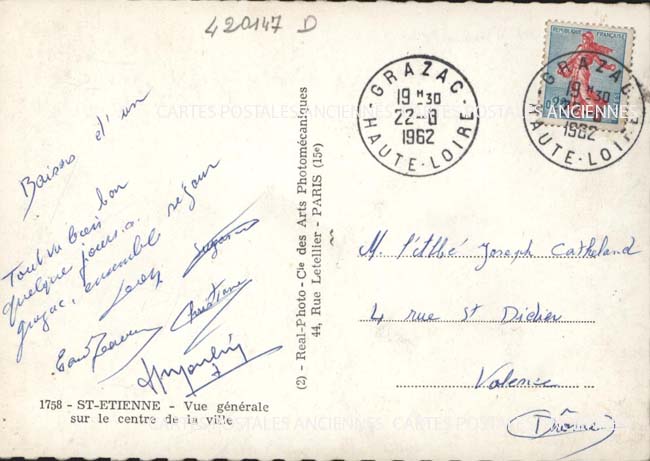 420147 D
GRAZAC
19 H 30
22-8
1962
HAUTE-LOIRE
REPUBLIQUE FRANÇAISE
GRAZAC
19 H 30
1962
HAUTE-LOIRE
CARTES POSTALES ANCIENNES
CARTES POSTALES ANCIENNES
Baisers d'un
bon
séjour
Tout va bien
quelques jours a
grazac, ensemble
(2) - Real-Photo - Cie des Arts Photomécaniques
44, Rue Letellier - PARIS (15e)
M. l'Abbé Joseph Catheland
4 rue St Didier
Valence
(Drôme)
1758 - ST-ETIENNE - Vue générale
sur le centre de la ville
CARTES POSTALES ANCIENNES
CARTES POSTALES ANCIENNES